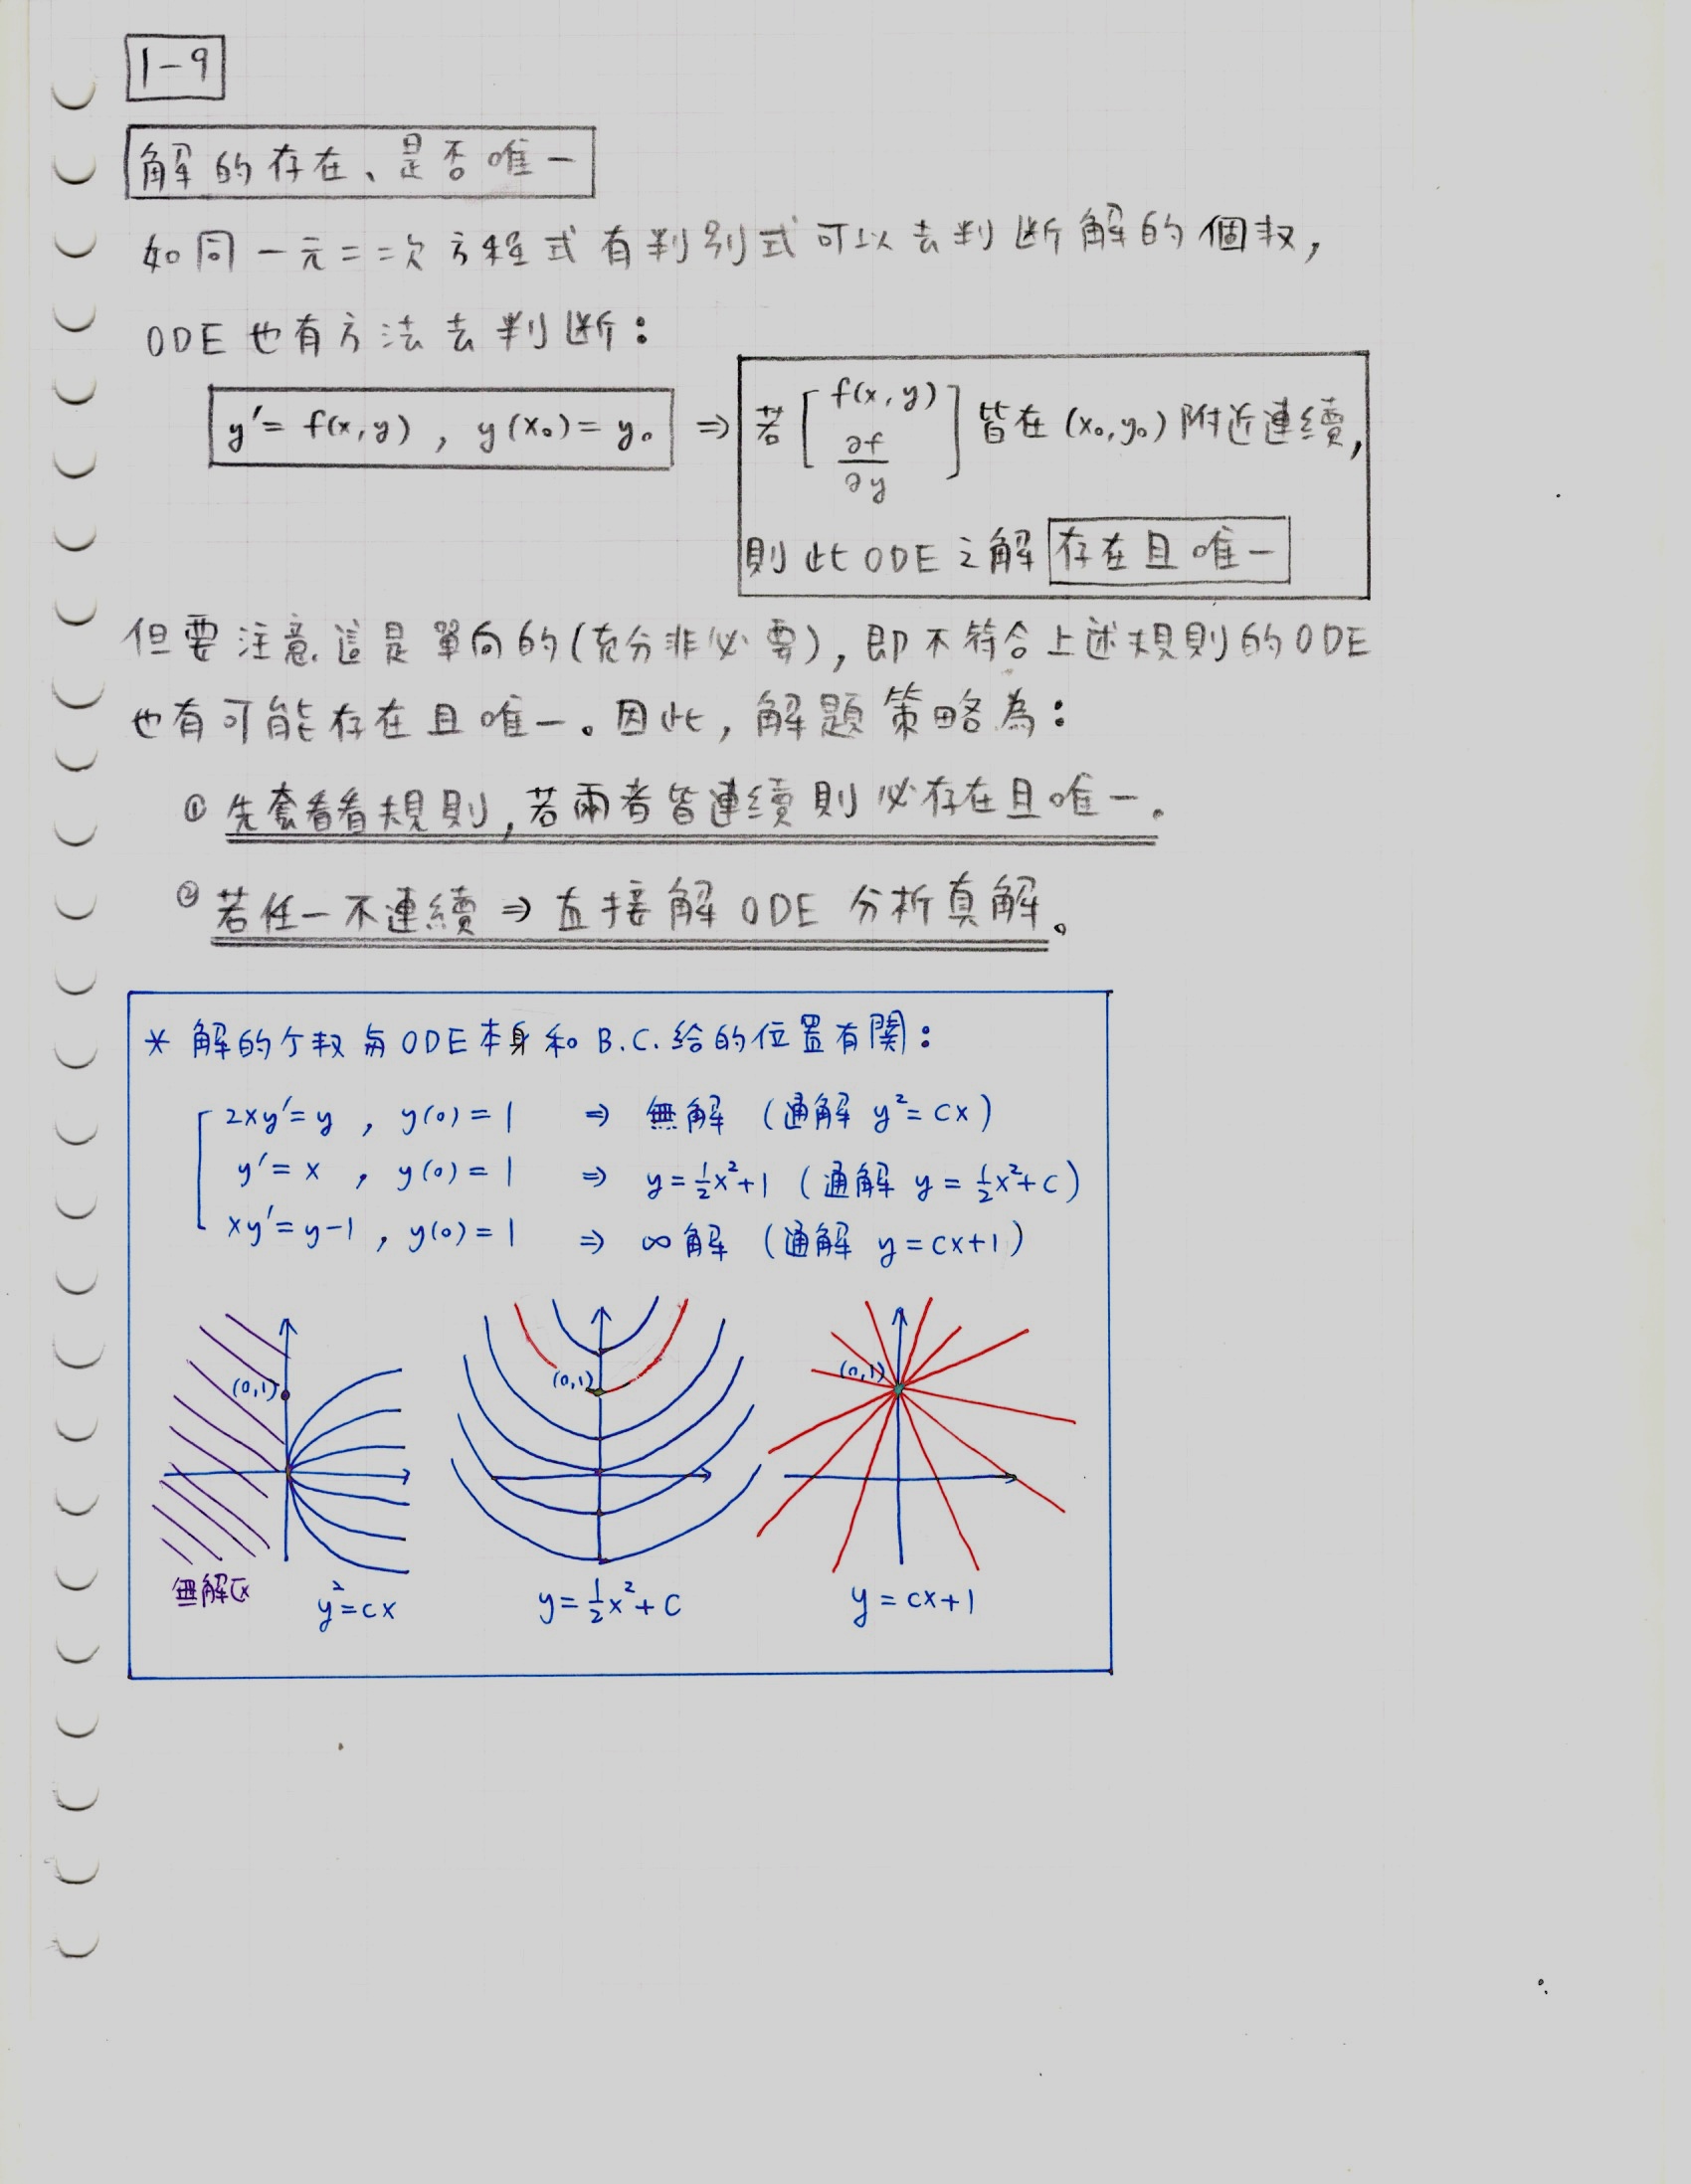 1-9
解的存在、是否唯一
如同一元二次方程式有判別式可以去判斷解的個数,
ODE 也有方法去判斷:
y' = f(x,y) , y(x₀) = y₀ ⇒ 若 [ f(x,y) ∂f/∂y ] 皆在 (x₀,y₀) 附近連續,
則此 ODE 之解 存在且唯一
但要注意這是單向的(充分非必要), 即不符合上述規則的 ODE
也有可能存在且唯一。因此, 解題策略為:
① 先套看看規則, 若兩者皆連續則必存在且唯一.
② 若任一不連續 ⇒ 直接解 ODE 分析真解。
* 解的个数與 ODE 本身和 B.C. 給的位置有關:
2xy' = y , y(0) = 1 ⇒ 無解 (通解 y² = cx)
y' = x , y(0) = 1 ⇒ y = ½x² + 1 (通解 y = ½x² + C)
xy' = y-1 , y(0) = 1 ⇒ ∞ 解 (通解 y = cx+1)
(0,1) (0,1) (0,1)
無解区 y² = cx y = ½x² + C y = cx+1